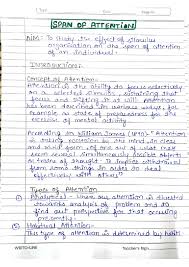 SPAN OF ATTENTION
AIM: To study the effect of stimulus
organisation on the span of attention
of an individual.
INTRODUCTION:
Concept of Attention:
Attention is the ability to focus selectively
on a selected stimulus, sustaining that
focus and shifting it at will. Attention
has been described in various ways, for
example as state of preparedness or the
exercise of mental activity.
According to William James (1890) "Attention
is taking possession by the mind in clear
and vivid form, of one out of what
seem several simultaneously possible objects
or trains of thought. It implies withdrawal
from some things in order to deal
effectively with others."
Types of Attention
① Analytical - When our attention is
towards analysis of problem to find
out perspective for that
② Habitual Attention -
This type of attention is determined by habit
Teacher's Sign